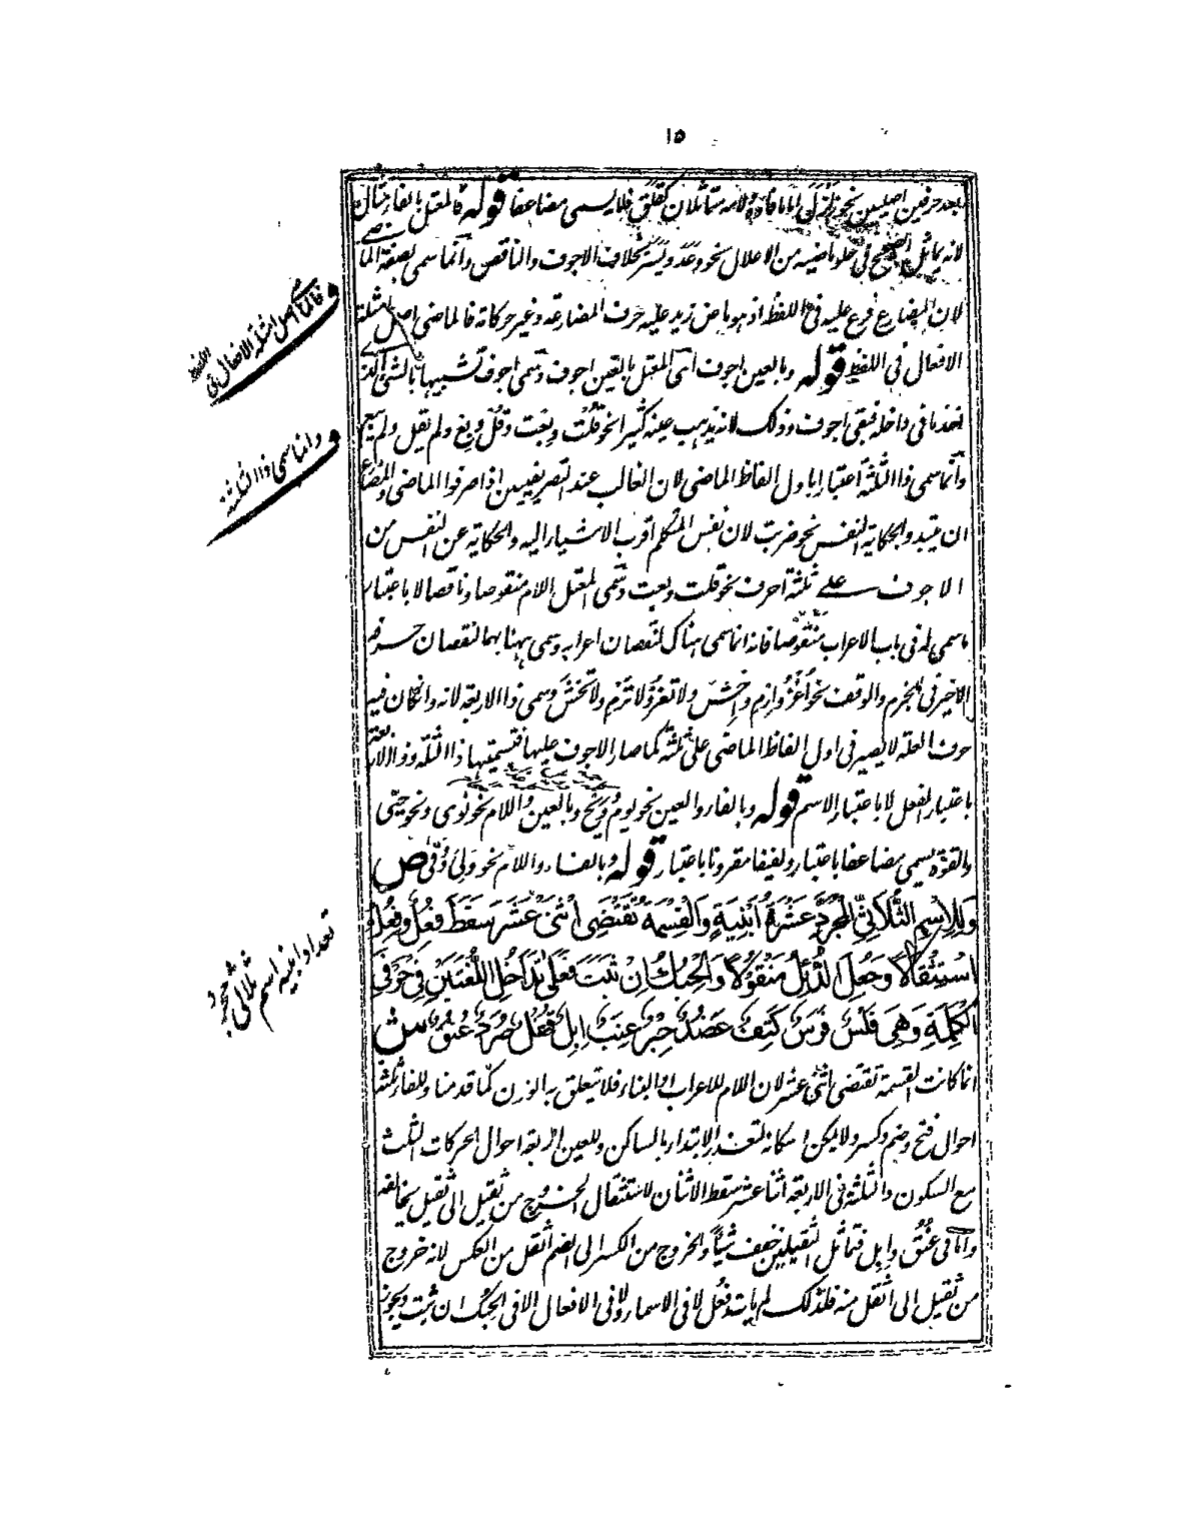 ١٥
بعد حرفين اصليين نحو زلزل اما ما فاؤه ولامه متماثلان كقلق فلا يسمى مضاعفا قوله فالمعتل بالفاء مثال
لانه يماثل الصحيح في خلو ماضيه من الاعلال نحو وعد ويسر بخلاف الاجوف والناقص وانما سمى بصفة الماضي
لان المضارع فرع عليه في اللفظ اذ هو ماض زيد عليه حرف المضارعة وغير حركاته فالماضى اصل امثلة
الافعال في اللفظ قوله وبالعين اجوف اى المعتل بالعين اجوف وسمى اجوف تشبيها بالشئ الذى
اخذ ما في داخله فبقى اجوف وذلك لانه يذهب عينه كثيرا نحو قلت وبعت وقل وبع ولم يقل ولم يبع
وانما سمى ذا الثلثة اعتبارا باول الفاظ الماضى لان الغالب عند التصريفيين اذا صرفوا الماضى والمضارع
ان يبتدوا بحكاية النفس نحو ضربت لان نفس المتكلم اقرب الاشياء اليه والحكاية عن النفس من
الاجوف على ثلثة احرف نحو قلت وبعت وسمى المعتل اللام منقوصا وناقصا لا باعتبار
ما سمى له في باب الاعراب منقوصا فانه انما سمى هناك لنقصان اعرابه وسمى ههنا بهما لنقصان حرفه
الاخير في الجزم والوقف نحو اغز وارم واخش ولا تغز ولا ترم ولا تخش وسمى ذا الاربعة لانه وان كان فيه
حرف العلة لا يصير في اول الفاظ الماضى على ثلثة كما صار الاجوف عليها فتسميتها ذا الثلثة وذا الاربعة
باعتبار الفعل لا باعتبار الاسم قوله وبالفاء والعين نحو يوم وويح وبالعين واللام نحو نوى ونحو حيى
والقوة يسمى مضاعفا باعتبار ولفيفا مقرونا باعتبار قوله وبالفاء واللام نحو ولى ووقى ص
وَلِلِاسْمِ الثُّلَاثِيِّ الْمُجَرَّدِ عَشَرَةُ أَبْنِيَةٍ وَالْقِسْمَةُ تَقْتَضِى اثْنَىْ عَشَرَ سَقَطَ فِعُلٌ وَفُعِلٌ
اسْتِثْقَالًا وَجُعِلَ الدُّئِلُ مَنْقُولًا وَالْحِبُكُ اِنْ ثَبَتَ فَعَلَى تَدَاخُلِ اللُّغَتَيْنِ فِى حَرْفَىِ
الْكَلِمَةِ وَهِىَ فَلْسٌ فَرَسٌ كَتِفٌ عَضُدٌ حِبْرٌ عِنَبٌ اِبِلٌ قُفْلٌ صُرَدٌ عُنُقٌ ش
انما كانت القسمة تقتضى اثنى عشر لان اللام للاعراب او البناء فلا يتعلق به الوزن كما قدمنا وللفاء ثلثة
احوال فتح وضم وكسر ولا يمكن اسكانه لتعذر الابتداء بالساكن وللعين اربعة احوال الحركات الثلث
مع السكون والثلثة في الاربعة اثنا عشر سقط الاثنان لاستثقال الخروج من ثقيل الى ثقيل يخالفه
واما في عنق وابل فتماثل الثقيلين خفف شيئا والخروج من الكسر الى الضم اثقل من العكس لانه خروج
من ثقيل الى اثقل منه فلذلك لم يات فعل لا في الاسماء ولا في الافعال الا في الحبك ان ثبت ويجوز
فالماضى اصل امثلة الافعال في اللفظ
وانما سمى ذا الثلثة
تعداد ابنيه اسم ثلاثى مجرد